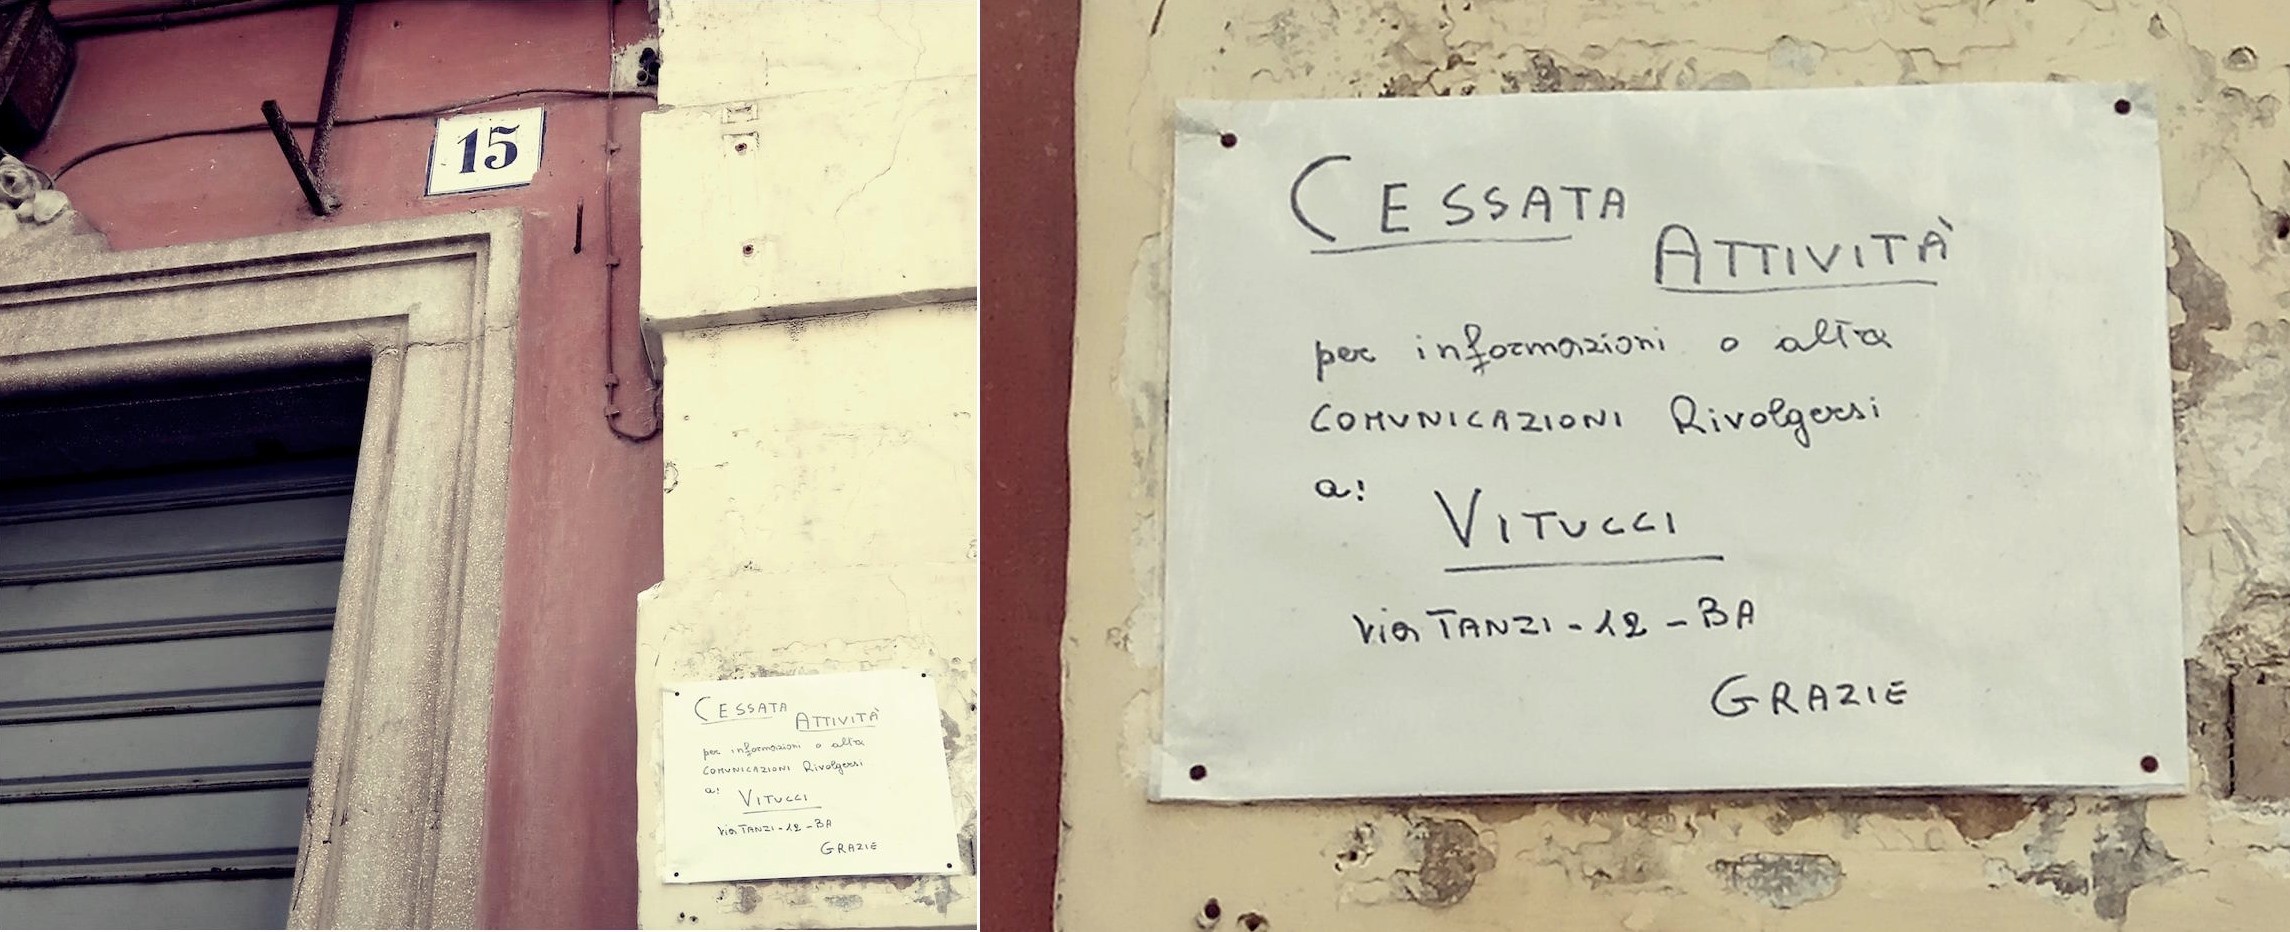 15
CESSATA
ATTIVITÀ
per informazioni o altra
COMUNICAZIONI Rivolgersi
a:
VITUCCI
via TANZI - 12 - BA
GRAZIE
CESSATA
ATTIVITÀ
per informazioni o altra
COMUNICAZIONI Rivolgersi
a:
VITUCCI
via TANZI - 12 - BA
GRAZIE